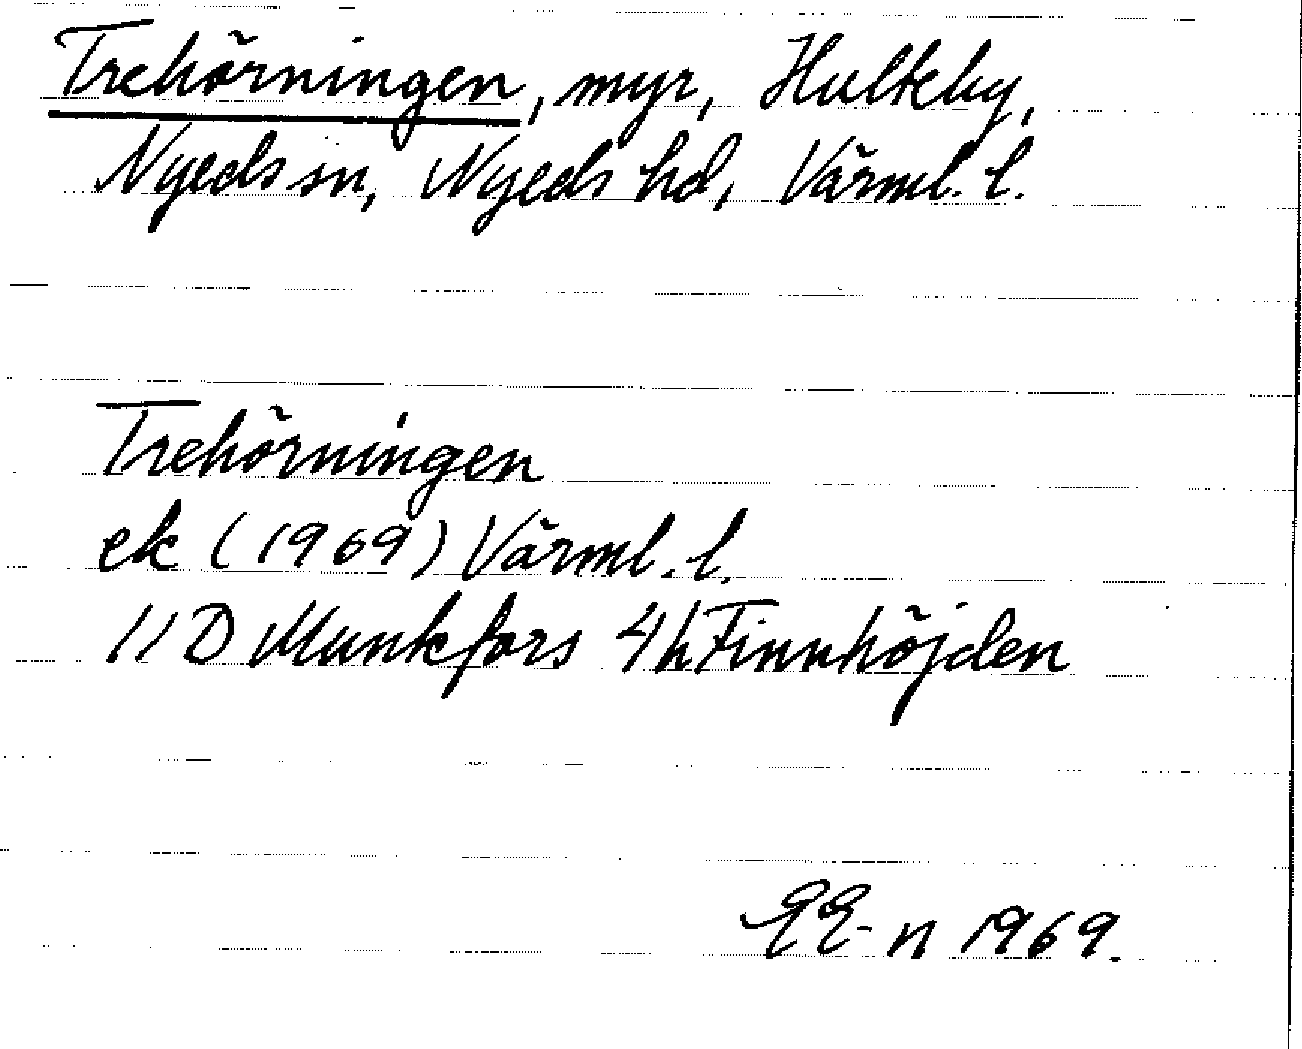 Trehörningen, myr, Hultby,
Nyeds sn, Nyeds hd, Värml. l.
Trehörningen
ek (1969) Värml. l.
11D Munkfors 4h Finnhöjden
EE-n 1969.